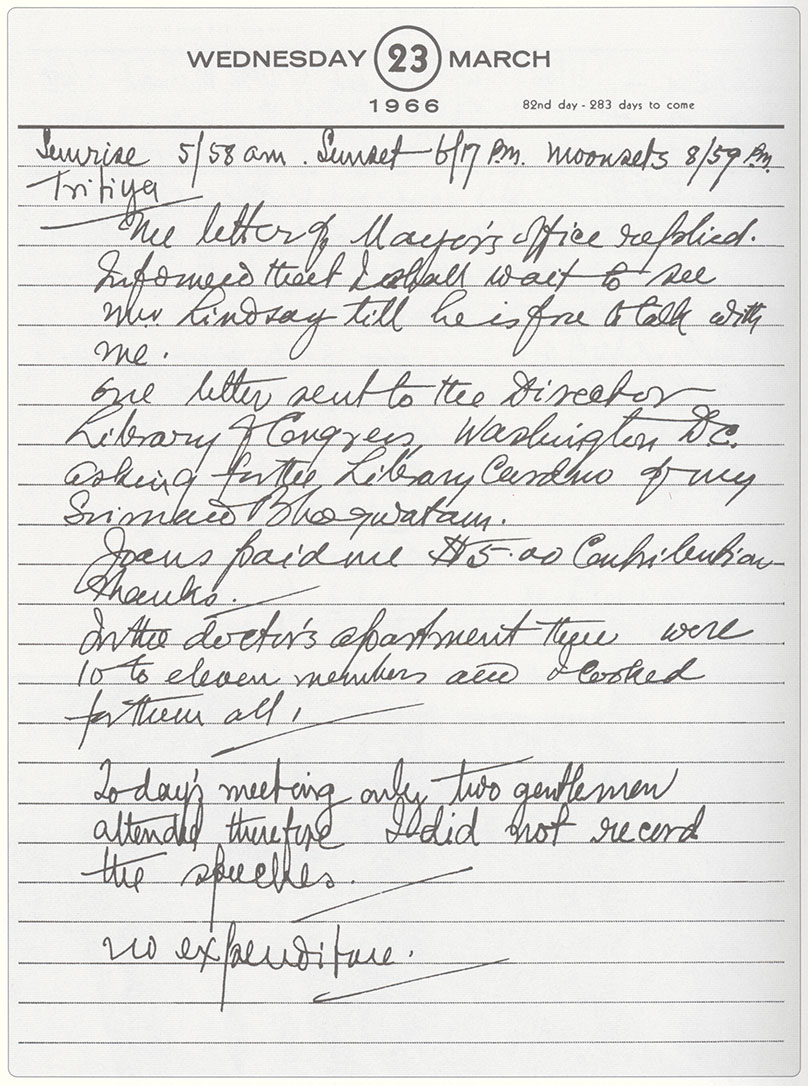 WEDNESDAY 23 MARCH
1966
82nd day - 283 days to come
Sunrise 5/58 am. Sunset 6/17 P.M. Moonsets 8/59 P.M.
Tritiya
The letter of Mayor's office replied.
Informed that I shall wait to see
Mr. Lindsay till he is free to talk with
me.
One letter sent to the Director
Library of Congress, Washington D.C.
asking for the Library Card no of my
Srimad Bhagwatam.
paid me $5.00 Contribution
Thanks.
In the doctor's apartment there were
10 to eleven members and I cooked
for them all.
Today's meeting only two gentlemen
attended therefore I did not record
the speeches.
No expenditure.